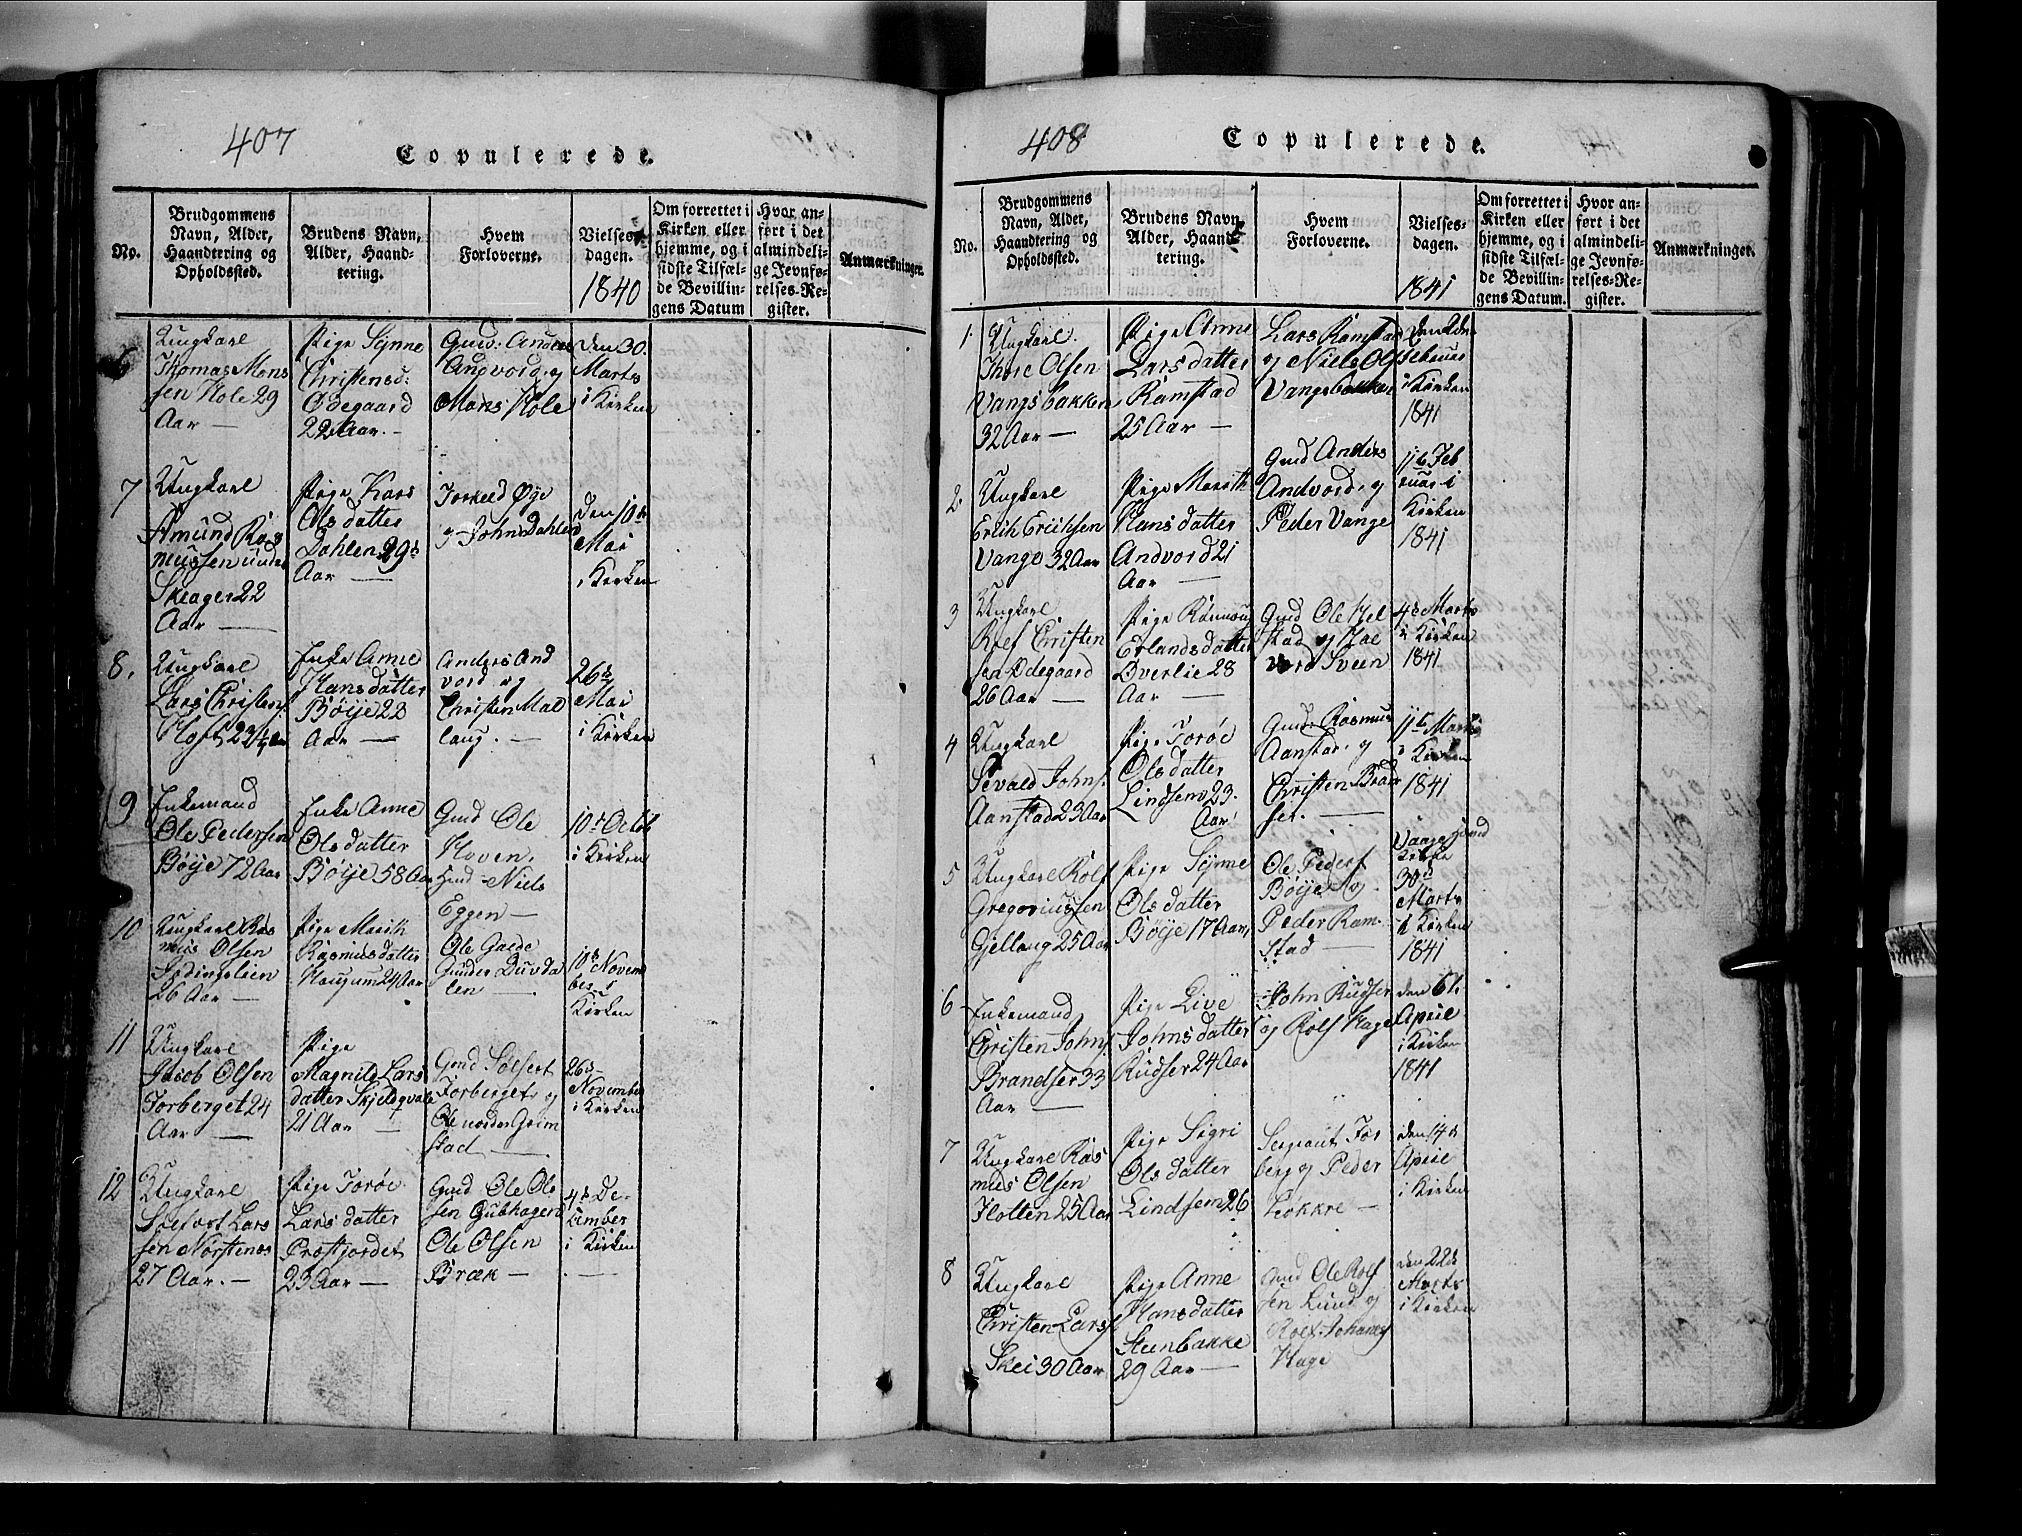 407
Copulerede.
No.
Brudgommens
Navn, Alder,
Haandtering og
Opholdssted.
Brudens Navn,
Alder, Haand-
tering.
Hvem
Forloverne.
Vielses-
dagen.
1840
Om forrettet i
Kirken eller
hjemme, og i
sidste Tilfæl-
de Bevillin-
gens Datum
Hvor an-
ført i det
almindeli-
ge Jevnfø-
relses-Re-
gister.
Anmærkninger.
6
Ungkarl
Thomas Mons
sen Hole 29
Aar —
Pige Synne
Christensd:
Ødegaard
22 Aar. —
Gmd: Anders
Andvord, og
Mons Hole
Den 30.
Marts
i Kirken
7
Ungkarl
Amund Ras
mussen under
Skeager 22
Aar —
Pige Kari
Olsdatter
Dahlen 29
Aar —
Torkeld Øye
og John Dahlen
Den 10de
Mai
i Kirken
8.
Ungkarl
Lars Christens:
Hoft 23 Aar
Enke Anne
Hansdatter
Bøye 22
Aar —
Anders And
vord og
Christen Mæl
laug. —
26de
Mai
i Kirken
9
Enkemand
Ole Pedersen
Bøye 72 Aar
Enke Anne
Olsdatter
Bøye 58 Aar
Gmd Ole
Hoven,
Gmd Niels
Eggen —
10de Octob
i Kirken
10
Ungkarl Ras
mus Olsen
26 Aar —
Pige Marith
Rasmusdatter
Haugum 24 Aar
Ole Gaarde
Gunder Duvda
len —
10de Novem
ber i
Kirken
11
Ungkarl
Jacob Olsen
Forberget 24
Aar —
Pige
Magnild Lars
datter Skjeldqvale
21 Aar —
Gmd Solfest
Forberget og
Ole nordre Grim
stad —
26de
November
i Kirken
12
Ungkarl
Solfest Lars
sen Norstenes
27 Aar. —
Pige Torøe
Larsdatter
Prostjordet
23 Aar —
Gmd Ole Ol
sen Gubhagen
Ole Olsen
Bræk —
4de De-
cember
i Kirken
408
Copulerede.
No.
Brudgommens
Navn, Alder,
Haandtering og
Opholdssted.
Brudens Navn,
Alder, Haand-
tering.
Hvem
Forloverne.
Vielses-
dagen.
1841
Om forrettet i
Kirken eller
hjemme, og i
sidste Tilfæl-
de Bevillin-
gens Datum.
Hvor an-
ført i det
almindeli-
ge Jevnfø-
relses-Re-
gister.
Anmærkninger.
1.
Ungkarl.
Thore Olsen
Vangsbakken
32 Aar —
Pige Anne
Larsdatter
Ramstad
25 Aar —
Lars Ramstad
og Niels Ols
Vangsbakken
Den 2de
Februar
i Kirken
1841
2.
Ungkarl
Erich Erichsen
Vange 32 Aar
Pige Marith
Hansdatter
Andvord 21
Aar —
Gmd Anders
Andvord, og
Peder Vange
11te Feb
ruar i
Kirken
1841
3
Ungkarl
Rolf Christen
sen Ødegaard
26 Aar —
Pige Rønnoug
Erlandsdatter
Øverlie 28
Aar —
Gmd Ole Hel
stad og Hal
vard Sveen
4de Marts
i Kirken
1841
4
Ungkarl
Sevald Johns.
Aanstad 23 Aar
Pige Torøe
Olsdatter
Lindsem 23.
Aar
Gmd: Rasmus
Aanstad, og
Christen Brand
ser. —
11te Marts
i Kirken
1841
5
Ungkarl Rolf
Gregoriussen
Gjellaug 25 Aar
Pige Synne
Olsdatter
Bøye 17 Aar,
Ole Peders
Bøye og
Peder Ram-
stad —
Kirke
30te
Marts
i Kirken
1841
6
Enkemand
Christen Johns.
Brandser 33
Aar —
Pige Live
Johnsdatter
Rudser 24 Aar
John Rudser
og Rolf Hage
den 6te
April
i Kirken
1841
7
Ungkarl Ras
mus Olsen
Flotten 25 Aar
Pige Sigri
Olsdatter
Lindsem 26
Sergeant For
berg og Peder
Løkkre —
den 14de
April
i Kirken
8
Ungkarl
Christen Larss.
Skei 30 Aar
Pige Anne
Hansdatter
Steenbakke
29 Aar —
Gmd Ole Rolf
sen Lund og
Rolf Johannes
Hage
den 22de
i Kirken